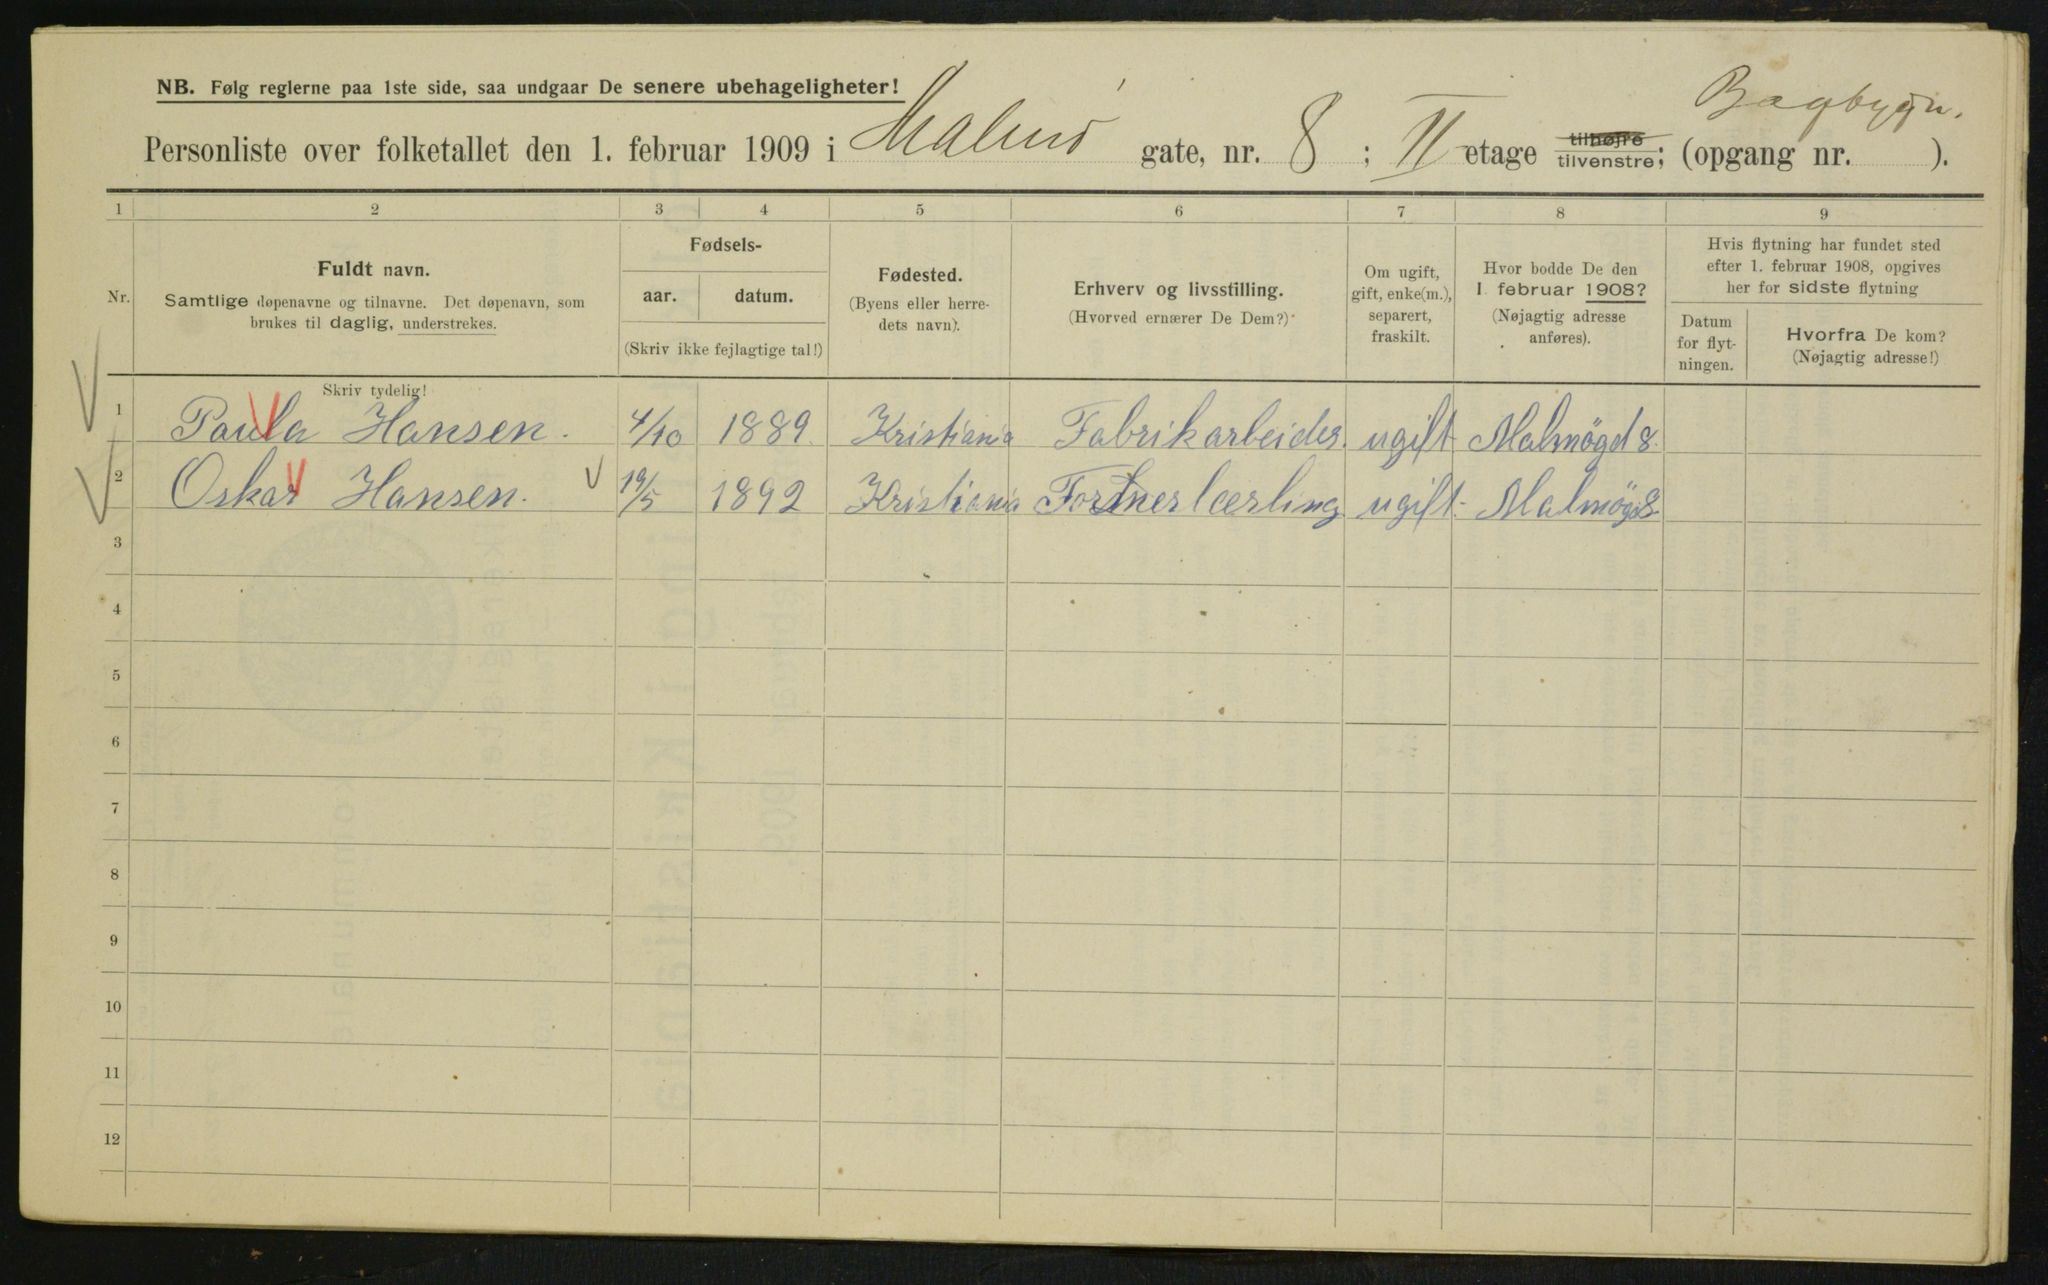 NB. Følg reglerne paa 1ste side, saa undgaar De senere ubehageligheter!
Bagbygn.
Personliste over folketallet den 1. februar 1909 i Malmö gate, nr. 8 ; II etage tilhøjre tilvenstre; (opgang nr. ).
1 2 3 4 5 6 7 8 9
Nr.
Fuldt navn.
Samtlige døpenavne og tilnavne. Det døpenavn, som
brukes til daglig, understrekes.
Skriv tydelig!
Fødsels-
aar. datum.
(Skriv ikke fejlagtige tal!)
Fødested.
(Byens eller herre-
dets navn).
Erhverv og livsstilling.
(Hvorved ernærer De Dem?)
Om ugift,
gift, enke(m.),
separert,
fraskilt.
Hvor bodde De den
1. februar 1908?
(Nøjagtig adresse
anføres).
Hvis flytning har fundet sted
efter 1. februar 1908, opgives
her for sidste flytning
Datum
for flyt-
ningen.
Hvorfra De kom?
(Nøjagtig adresse!)
1 Paula Hansen. 4/10 1889. Kristiania Fabrikarbeider. ugift Malmögd 8.
2 Oskar Hansen. 19/5 1892 Kristiania ugift. Malmögd 8
3
4
5
6
7
8
9
10
11
12